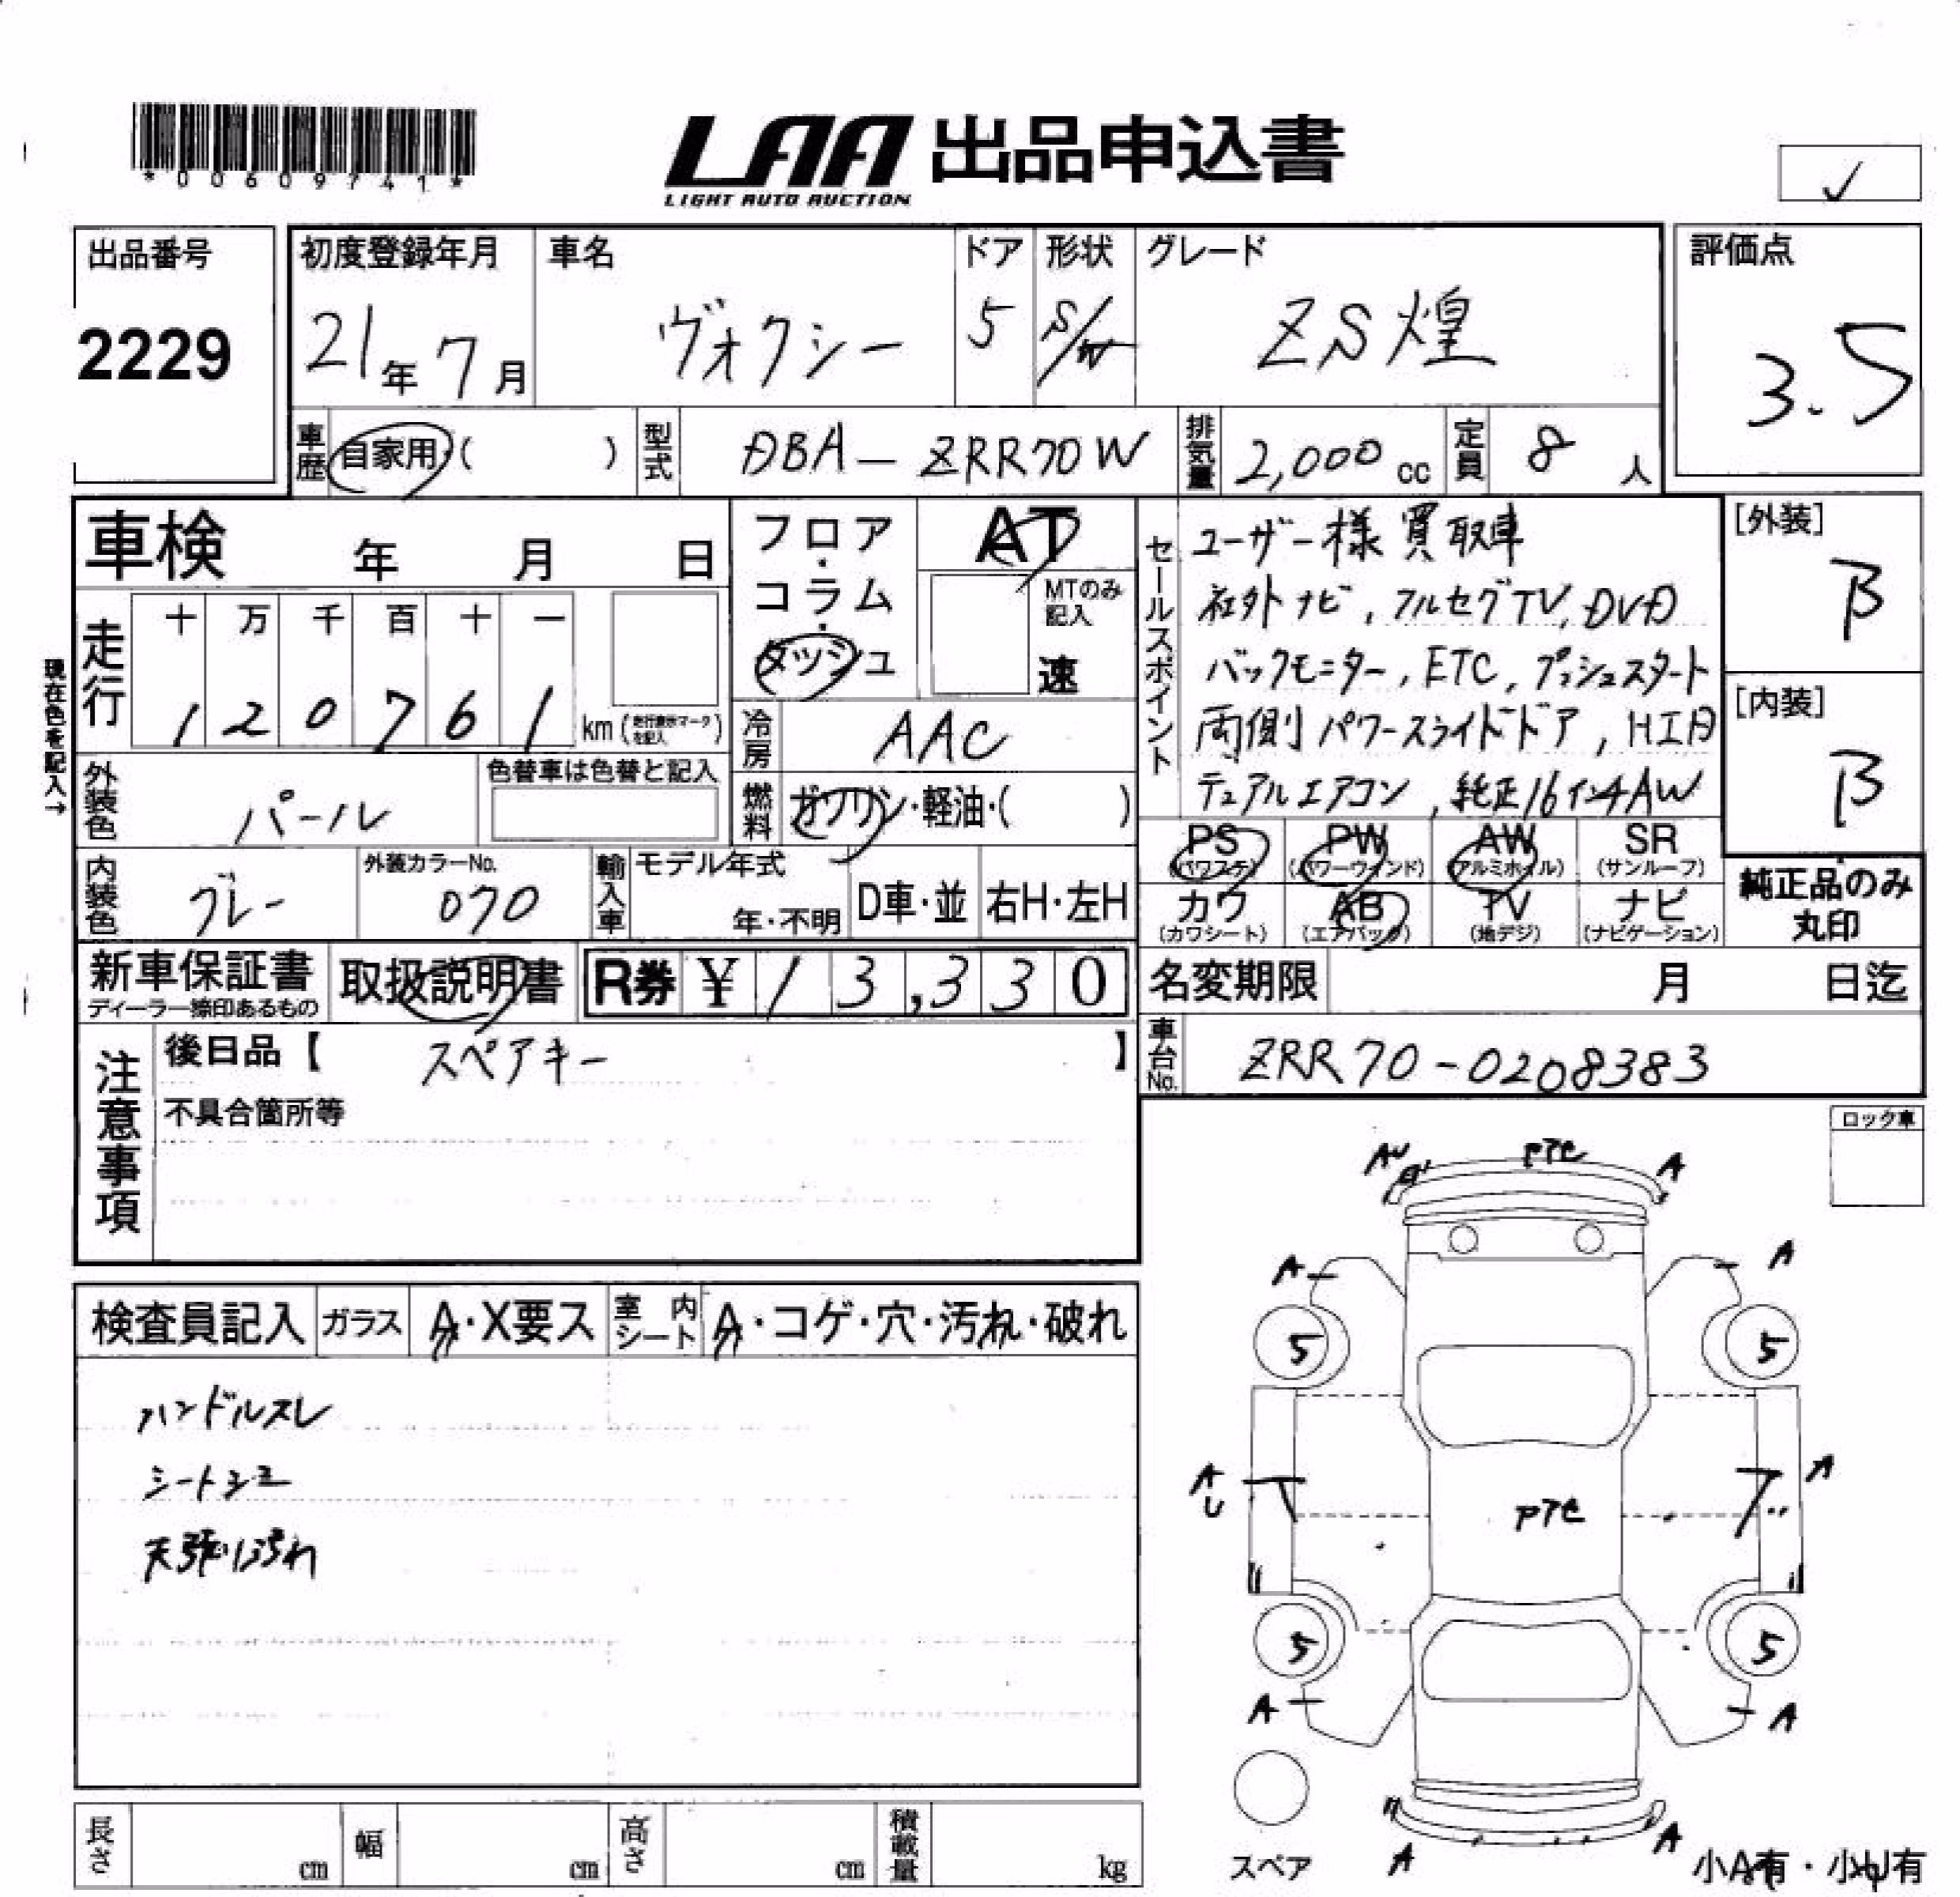 *00609741*
LAA 出品申込書
LIGHT AUTO AUCTION
✓
出品番号
2229
初度登録年月
21年 7月
車名
ヴォクシー
ドア
5
形状
S/W
グレード
ZS 煌
評価点
3.5
車歴
自家用・( )
型式
DBA-ZRR70W
排気量
2,000 cc
定員
8 人
車検 年 月 日
フロア・コラム・ダッシュ
AT
MTのみ記入
速
セールスポイント
ユーザー様買取車
社外ナビ, フルセグTV, DVD
バックモニター, ETC, プッシュスタート
両側パワースライドドア, HID
デュアルエアコン, 純正16インチAW
[外装]
B
[内装]
B
現在色を記入→
走行
十 万 千 百 十 一
1 2 0 7 6 1 km
冷房
AAC
外装色
パール
色替車は色替と記入
燃料
ガソリン・軽油・( )
PS (パワステ)
PW (パワーウィンド)
AW (アルミホイル)
SR (サンルーフ)
内装色
グレー
外装カラーNo.
070
輸入車
モデル年式
年・不明
D車・並
右H・左H
カワ (カワシート)
AB (エアバック)
TV (地デジ)
ナビ (ナビゲーション)
純正品のみ
丸印
新車保証書
ディーラー捺印あるもの
取扱説明書
R券 ¥ 13,330
名変期限 月 日迄
車台No.
ZRR70-0208383
注意事項
後日品【 スペアキー 】
不具合箇所等
ロック車
検査員記入
ガラス
A・X要ス
室内シート
A・コゲ・穴・汚れ・破れ
ハンドルスレ
シートシミ
AU
A
A
A
5
5
A
U
A
5
5
A
A
A
A
スペア
小A有・小U有
長さ cm
幅 cm
高さ cm
積載量 kg